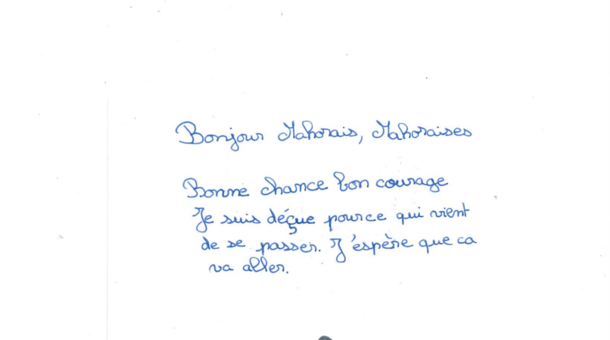 Bonjour Mahorais, Mahoraises
Bonne chance bon courage
Je suis déçue pource qui vient
de se passer. J'espère que ca
va aller.